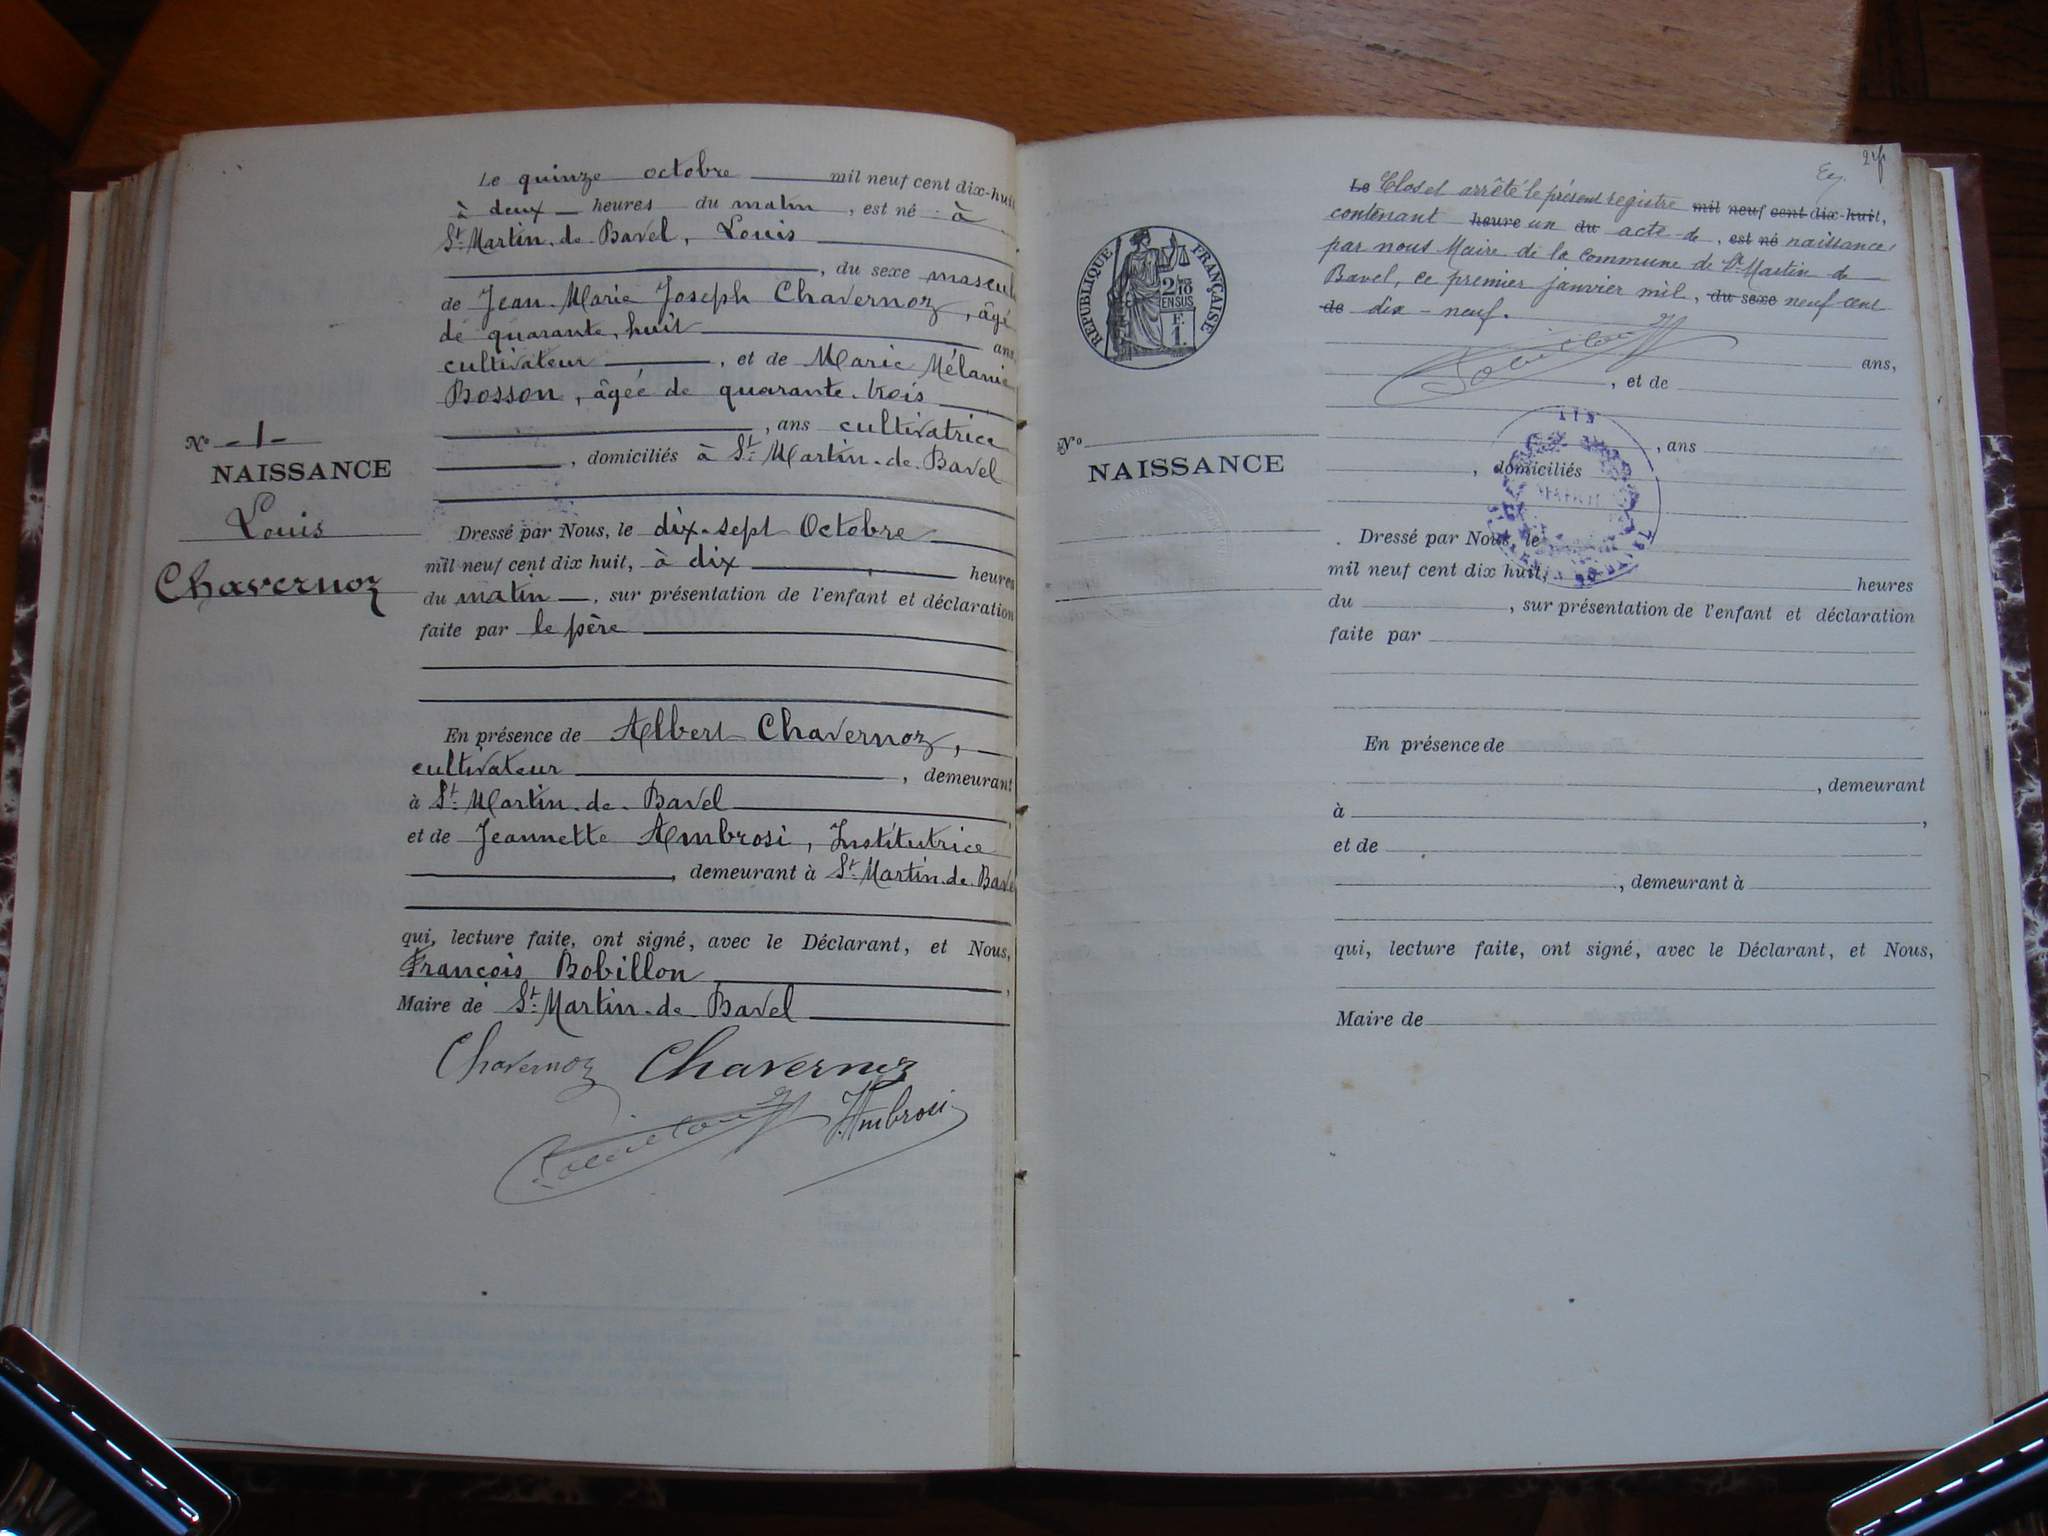 Le quinze octobre mil neuf cent dix-huit
à deux heures du matin, est né à
St Martin-de-Bavel, Louis
, du sexe mascul
de Jean-Marie Joseph Chavernoz, âgé
de quarante-huit ans
cultivateur, et de Marie Mélanie
Bosson, âgée de quarante-trois
, ans cultivatrice
, domiciliés à St Martin-de-Bavel
No -1-
NAISSANCE
Louis
Chavernoz
Dressé par Nous, le dix-sept Octobre
mil neuf cent dix huit, à dix heures
du matin, sur présentation de l'enfant et déclaration
faite par le père
En présence de Albert Chavernoz,
cultivateur, demeurant
à St Martin-de-Bavel
et de Jeannette Ambrosi, Institutrice
, demeurant à St Martin-de-Bave
qui, lecture faite, ont signé, avec le Déclarant, et Nous,
François Bobillon,
Maire de St Martin-de-Bavel
Chavernoz Chavernoz
J. Ambrosi
Le Clos et arrêté le présent registre mil neuf cent dix-huit,
contenant heure un du acte de, est né naissance,
par nous Maire de la commune de St Martin de
Bavel, ce premier janvier mil, du sexe neuf cent
de dix-neuf.
ans,
, et de
, ans
, domiciliés
RÉPUBLIQUE FRANÇAISE
2/10
EN SUS
F.
1.
No
NAISSANCE
AIN
Dressé par Nous, le
mil neuf cent dix huit, heures
du , sur présentation de l'enfant et déclaration
faite par
En présence de
, demeurant
à ,
et de
, demeurant à
qui, lecture faite, ont signé, avec le Déclarant, et Nous,
Maire de